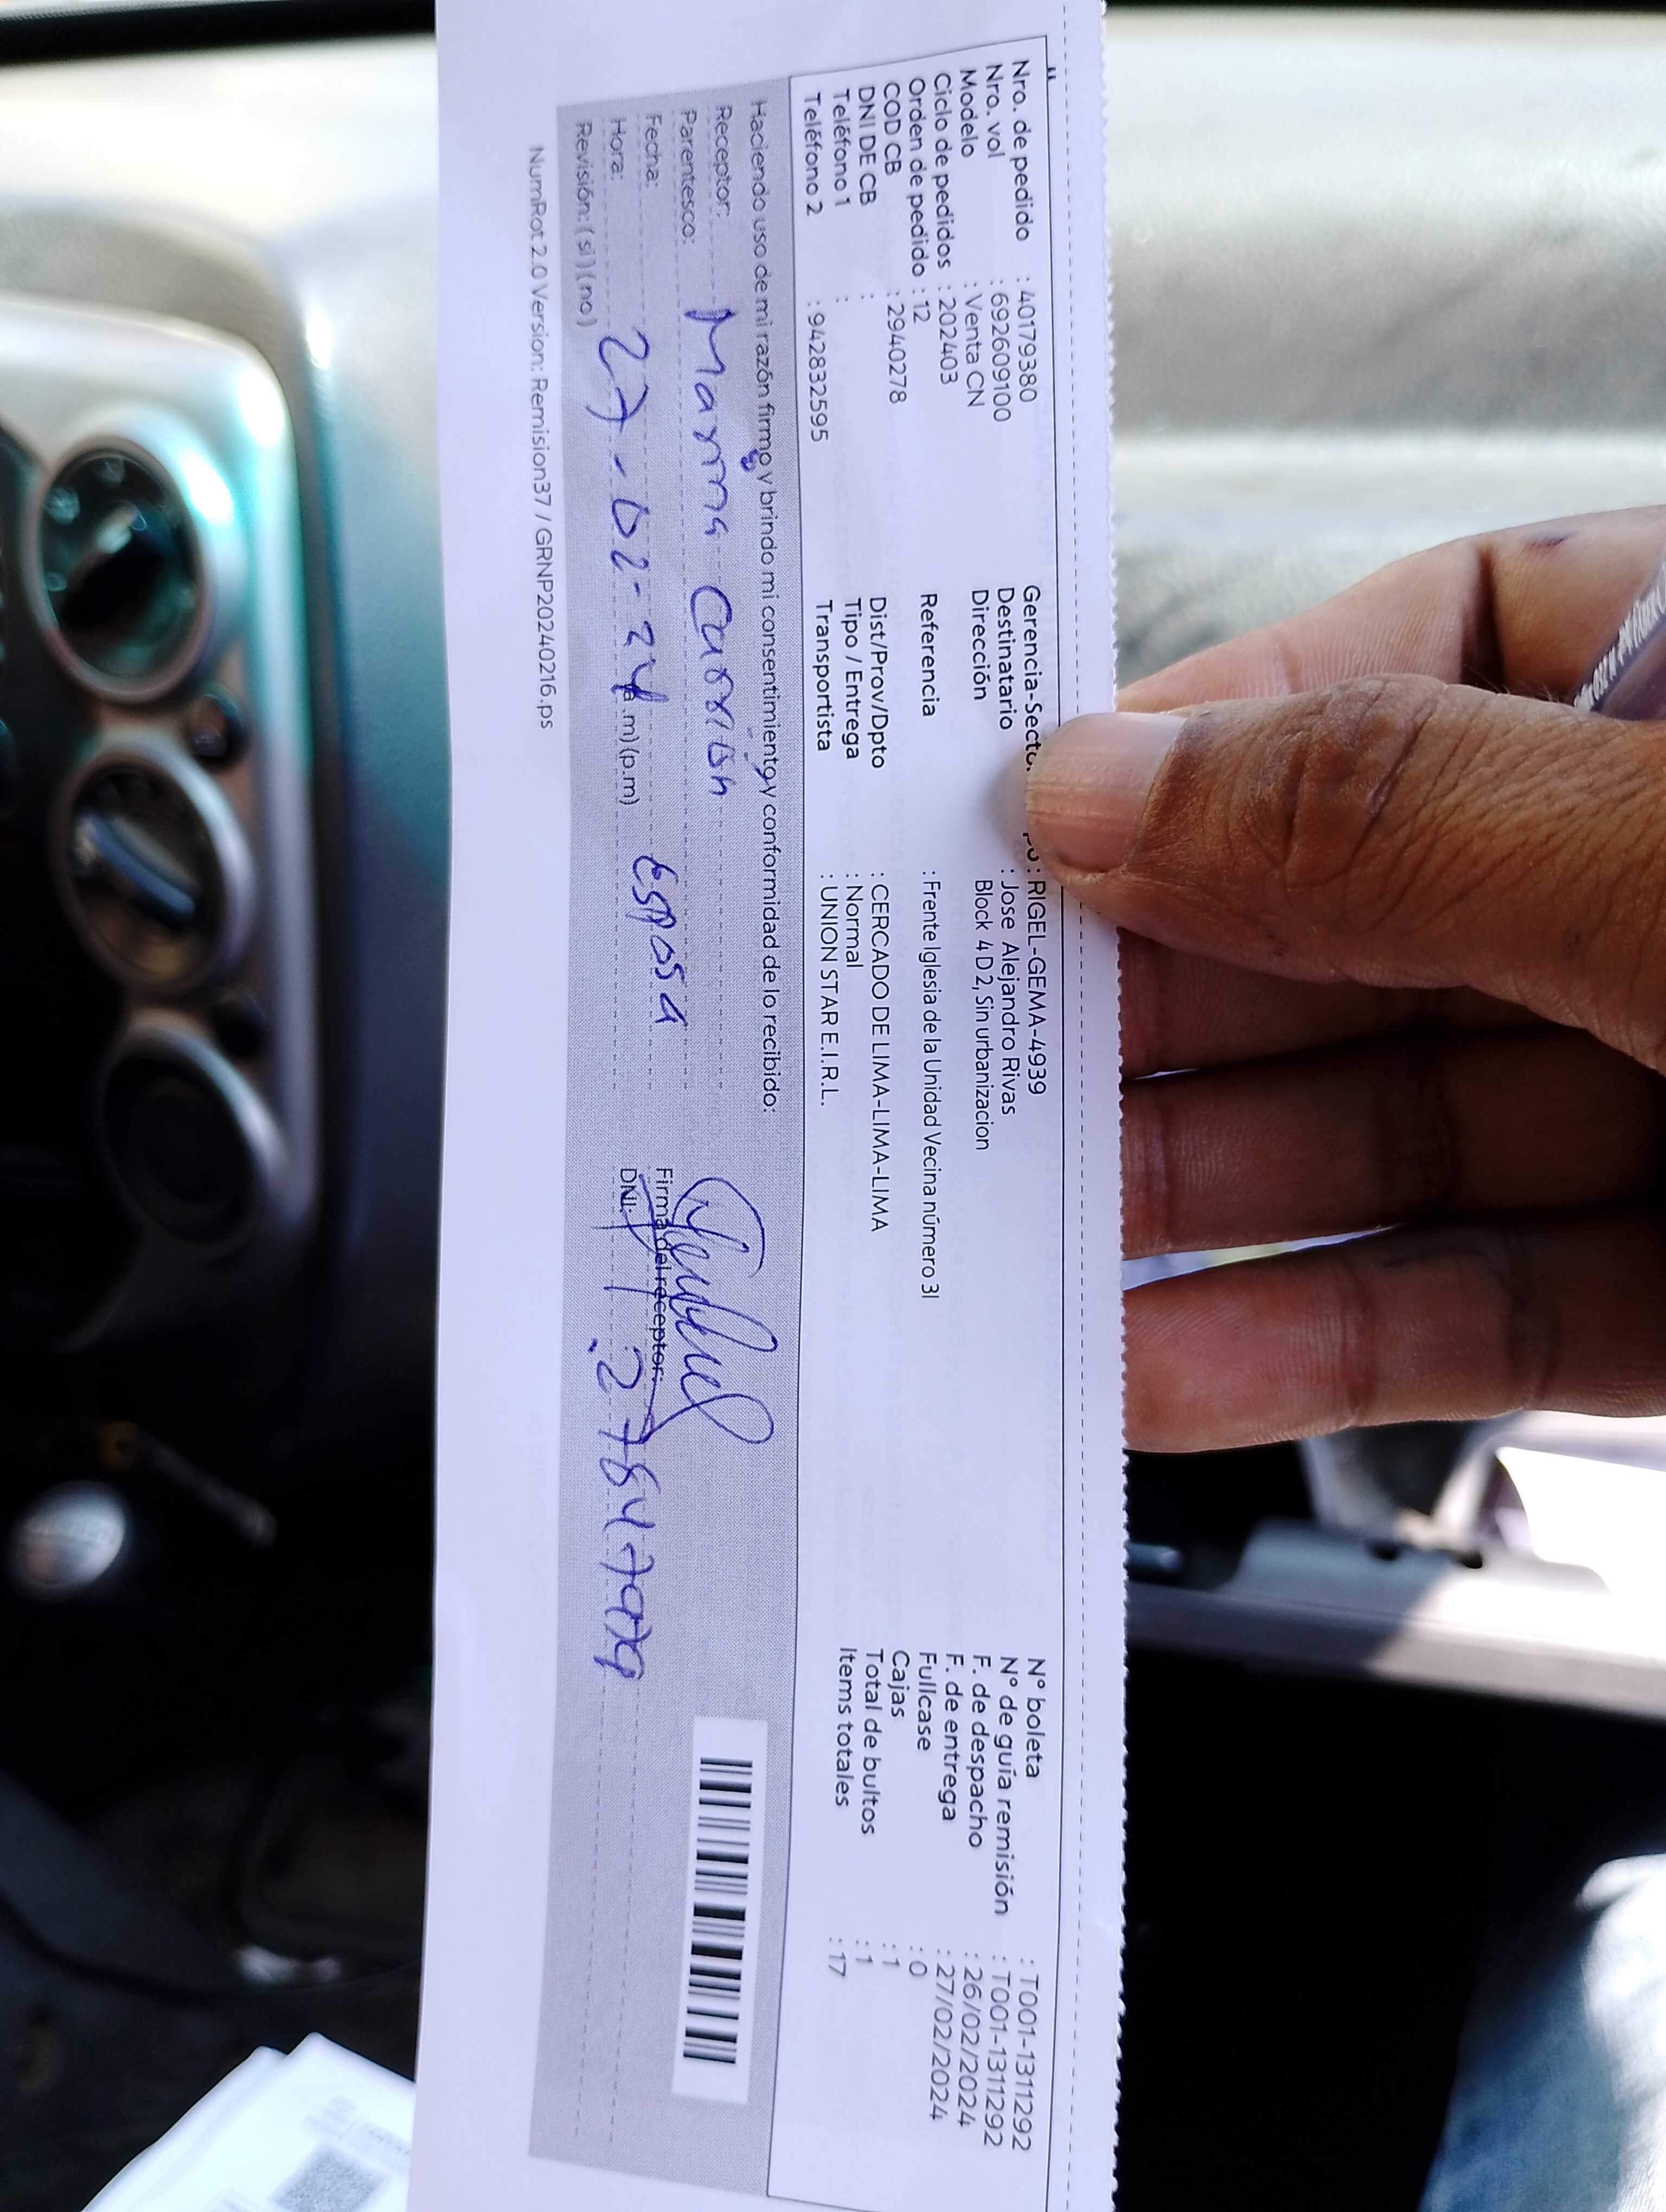 Nro. de pedido : 40179380
Nro. vol : 692609100
Modelo : Venta CN
Ciclo de pedidos : 202403
Orden de pedido : 12
COD CB : 2940278
DNI DE CB :
Teléfono 1 :
Teléfono 2 : 942832595
Gerencia-Secto : RIGEL-GEMA-4939
Destinatario : Jose Alejandro Rivas
Dirección Block 4 D 2, Sin urbanizacion
Referencia : Frente Iglesia de la Unidad Vecina número 3I
Dist/Prov/Dpto : CERCADO DE LIMA-LIMA-LIMA
Tipo / Entrega : Normal
Transportista : UNION STAR E.I.R.L.
N° boleta : T001-1311292
N° de guía remisión : T001-1311292
F. de despacho : 26/02/2024
F. de entrega : 27/02/2024
Fullcase : 0
Cajas : 1
Total de bultos : 1
Items totales : 17
Haciendo uso de mi razón firmo y brindo mi consentimiento y conformidad de lo recibido:
Receptor:
Parentesco: Esposa
Fecha: 27-02-24
Hora: (a.m) (p.m)
Revisión: ( si ) ( no )
Firma del receptor:
DNI:
NumRot 2.0 Version: Remision37 / GRNP20240216.ps